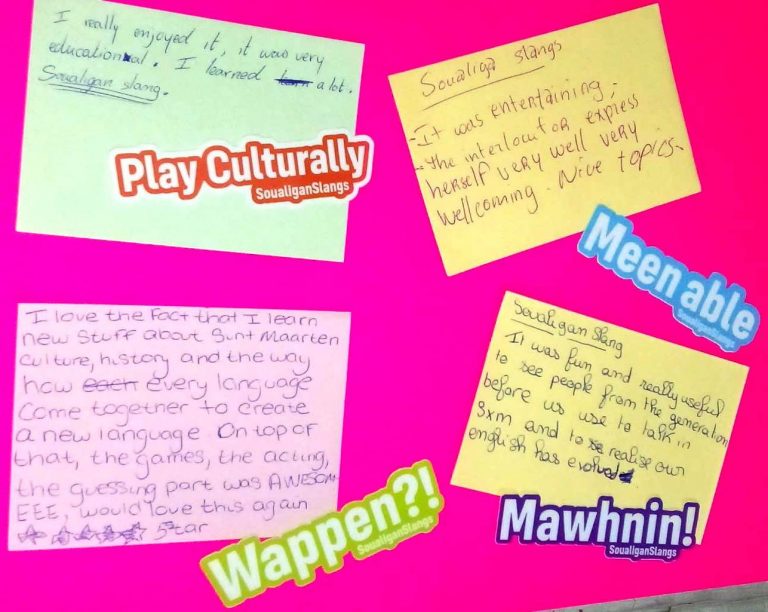 I really enjoyed it, it was very
educational. I learned a lot.
Soualigan slang.
Play Culturally
SoualiganSlangs
Soualiga slangs
-It was entertaining,
-The interlocutor express
herself very well very
wellcoming. Nive topics.
Meen able
SoualiganSlangs
I love the Fact that I learn
new stuff about Sint Maarten
Culture, history and the way
how each every language
Come together to create
a new language On top of
that, the games, the acting,
the guessing part was AWESOM
EEE, would love this again
5 star
Wappen?!
SoualiganSlangs
Soualigan Slang
It was fun and really useful
to see people from the generation
before us use to talk in
SXM and to realise our
english has evolved
Mawhnin!
SoualiganSlangs